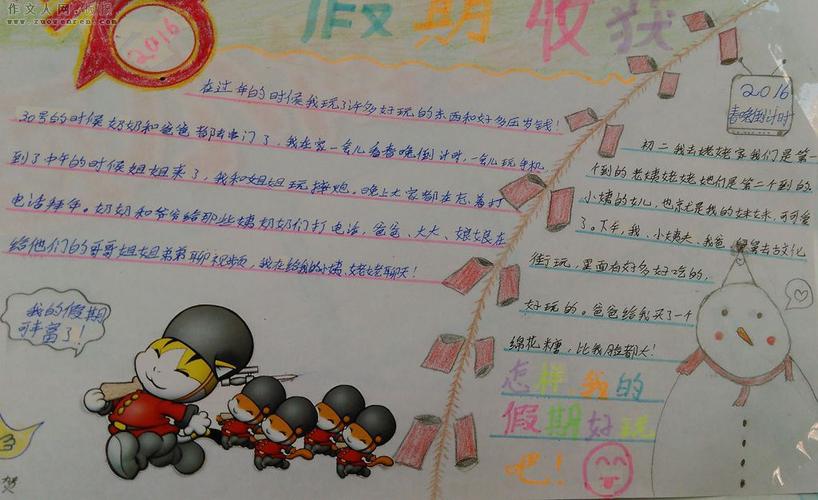 作文人网
www.zuowenren.com
2016
假期收获
在过年的时候我玩了许多好玩的东西和好多压岁钱！
30号的时候奶奶和爸爸都去串门了，我在家一会儿看春晚倒计时，一会儿玩手机
到了中午的时候姐姐来了，我和姐姐玩摔炮。晚上大家都在忘着打
电话拜年。奶奶和爷爷给那些姨奶奶们打电话，爸爸、大大、娘娘在
给他们的哥哥姐姐弟弟聊视频，我在给我的小姨、姥姥聊天！
我的假期
可丰富了！
2016
春晚倒计时
初二我去姥姥家我们是第一
个到的老姨姥姥她们是第二个到的
小姨的女儿，也就是我的妹妹，可可爱
了。下午，我、小姨夫、我爸、舅舅去古文化
街玩，里面有好多好吃的、
好玩的。爸爸给我买了一个
绵花糖，比我脸都大！
怎样，我的
假期好玩
吧！